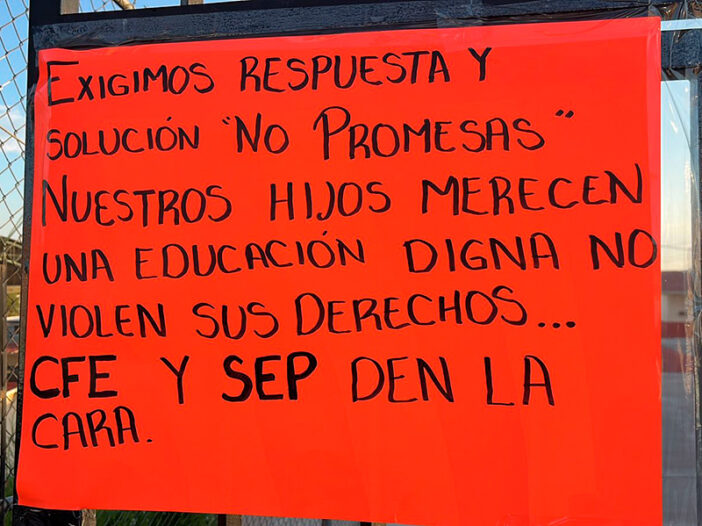 EXIGIMOS RESPUESTA Y
SOLUCIÓN "NO PROMESAS"
NUESTROS HIJOS MERECEN
UNA EDUCACIÓN DIGNA NO
VIOLEN SUS DERECHOS...
CFE Y SEP DEN LA
CARA.